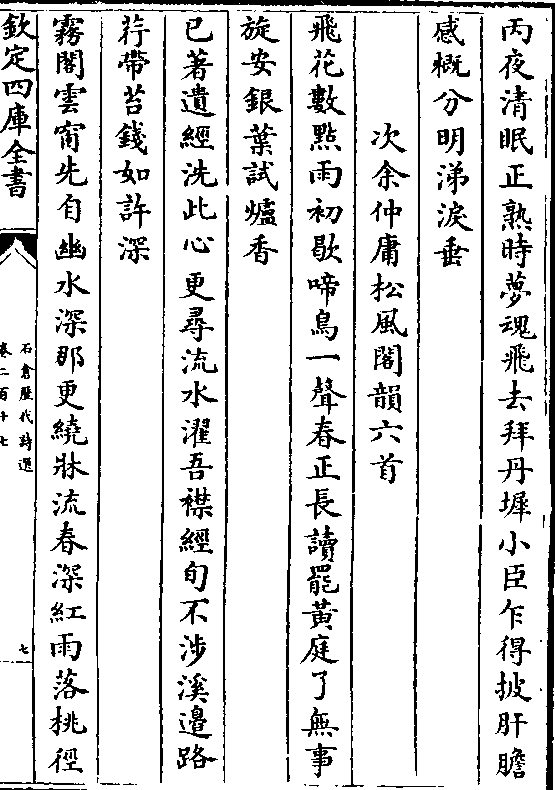 丙夜清眠正熟時夢魂飛去拜丹墀小臣乍得披肝膽
感慨分明涕淚垂
次余仲庸松風閣韻六首
飛花數點雨初歇啼鳥一聲春正長讀罷黃庭了無事
旋安銀葉試爐香
已著遺經洗此心更尋流水濯吾襟經句不涉溪邉路
荇帶苔錢如許深
霧閣雲窗先自幽水深那更繞牀流春深紅雨落桃徑
欽定四庫全書
石倉歷代詩選
卷二百十七
七